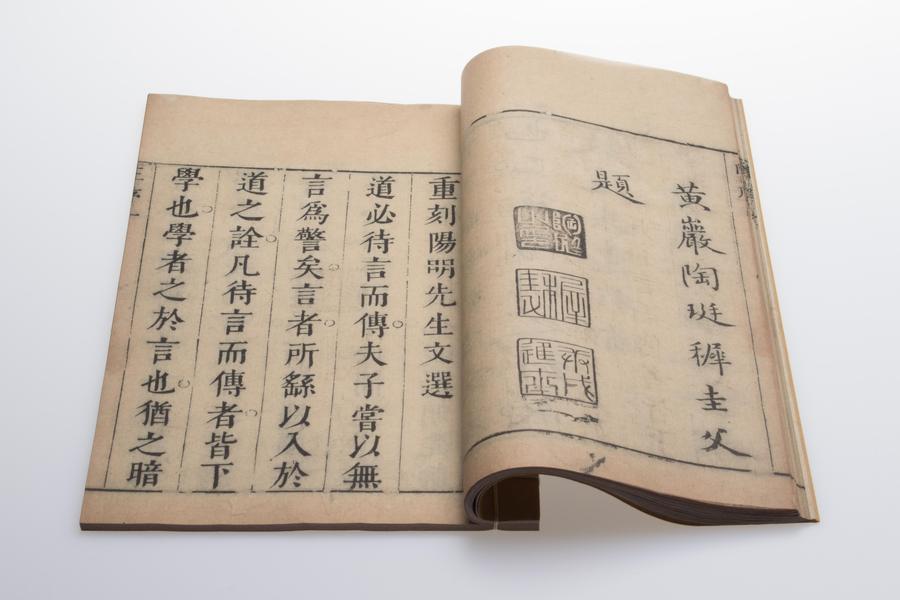 黄巖陶珽穉圭父
題
庚戌進士
重刻陽明先生文選
道必待言而傳夫子嘗以無
言爲警矣言者所繇以入於
道之詮凡待言而傳者皆下
學也學者之於言也猶之暗